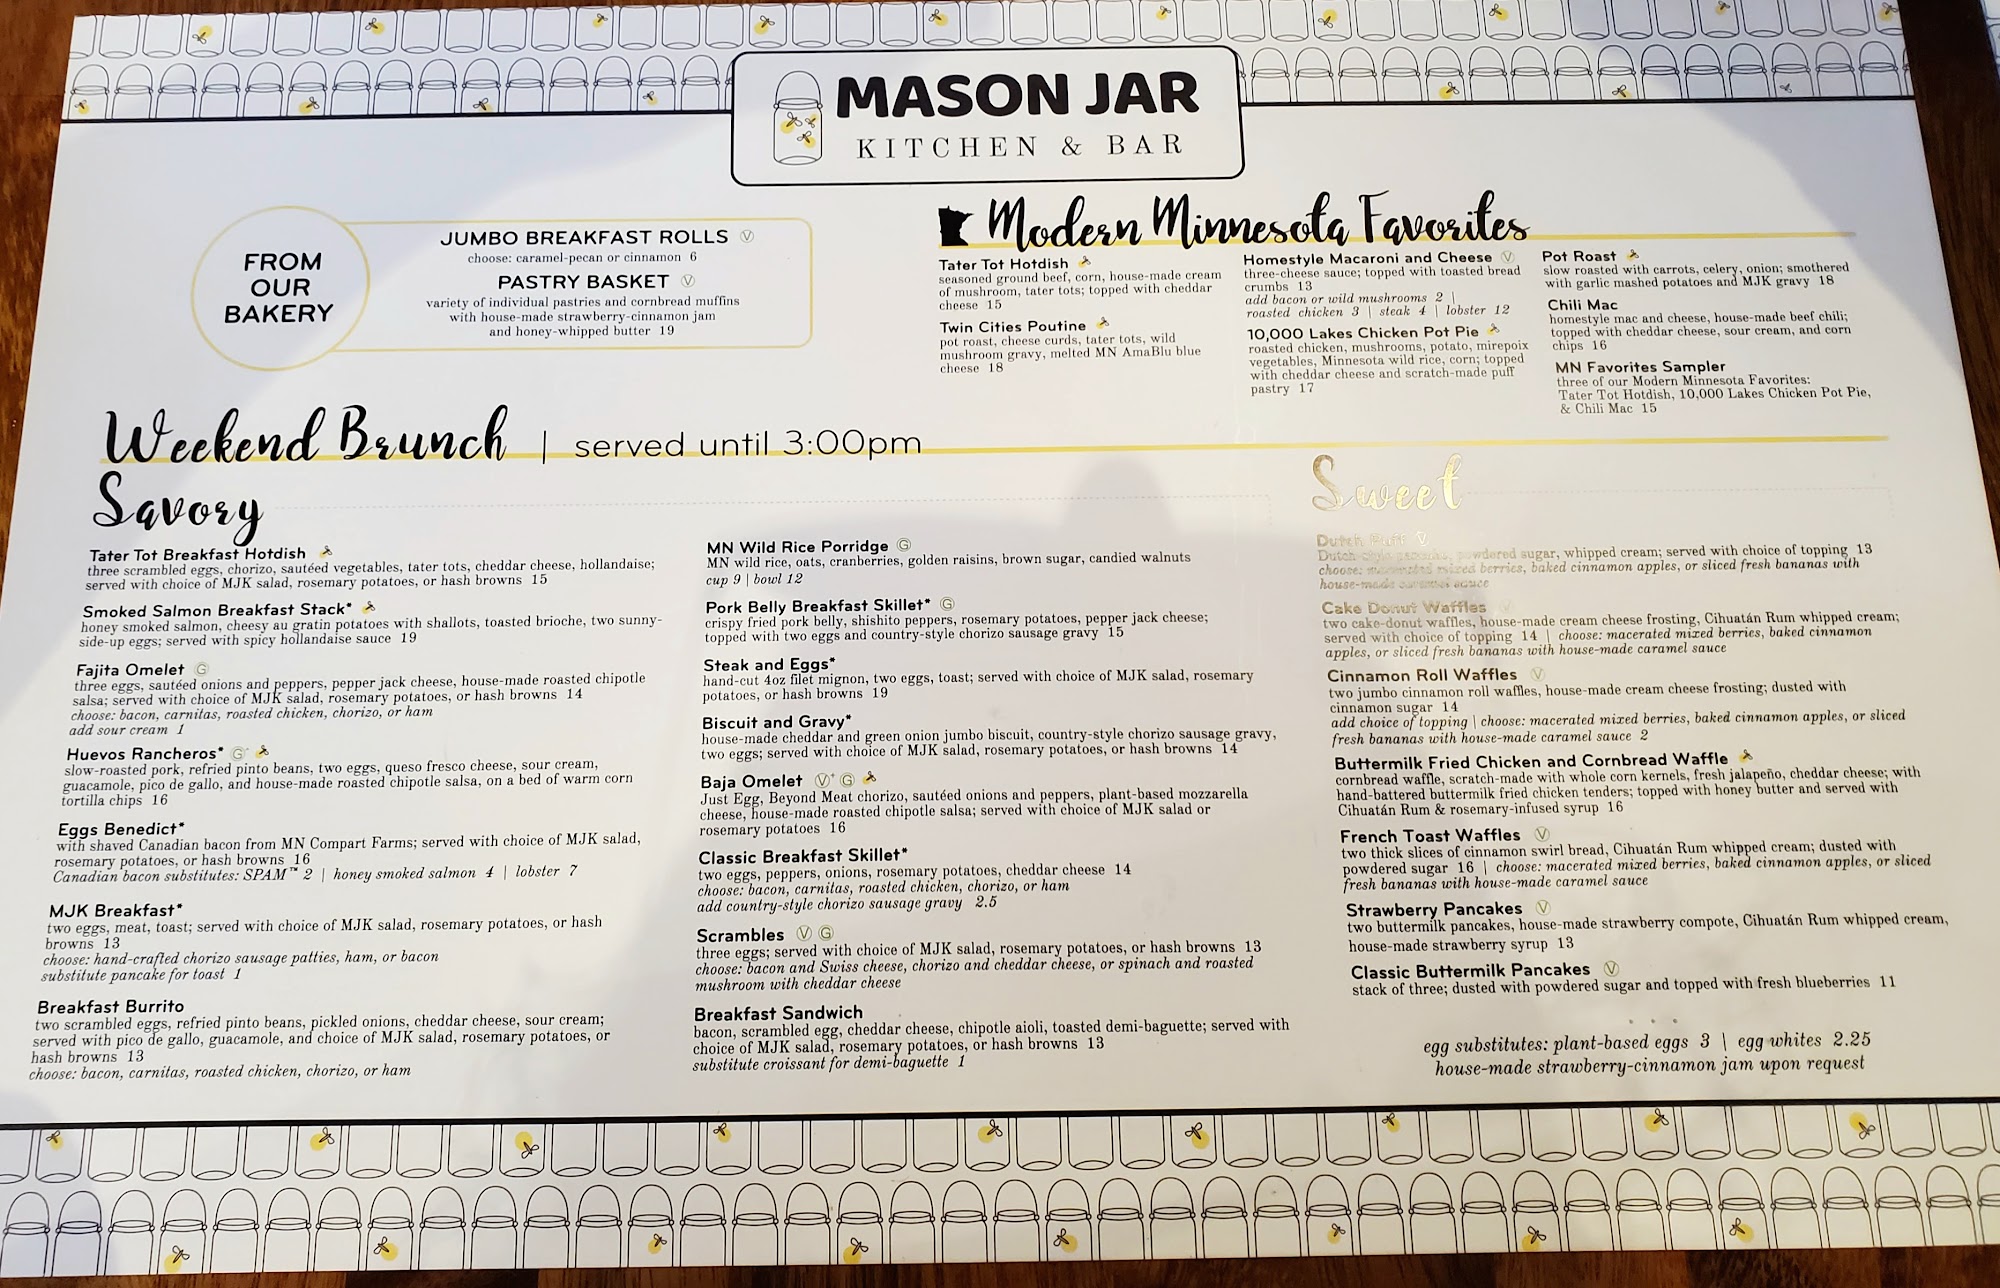 MASON JAR
KITCHEN & BAR
FROM
OUR
BAKERY
JUMBO BREAKFAST ROLLS V
choose: caramel-pecan or cinnamon 6
PASTRY BASKET V
variety of individual pastries and cornbread muffins
with house-made strawberry-cinnamon jam
and honey-whipped butter 19
Modern Minnesota Favorites
Tater Tot Hotdish
seasoned ground beef, corn, house-made cream
of mushroom, tater tots; topped with cheddar
cheese 15
Twin Cities Poutine
pot roast, cheese curds, tater tots, wild
mushroom gravy, melted MN AmaBlu blue
cheese 18
Homestyle Macaroni and Cheese V
three-cheese sauce; topped with toasted bread
crumbs 13
add bacon or wild mushrooms 2 |
roasted chicken 3 | steak 4 | lobster 12
10,000 Lakes Chicken Pot Pie
roasted chicken, mushrooms, potato, mirepoix
vegetables, Minnesota wild rice, corn; topped
with cheddar cheese and scratch-made puff
pastry 17
Pot Roast
slow roasted with carrots, celery, onion; smothered
with garlic mashed potatoes and MJK gravy 18
Chili Mac
homestyle mac and cheese, house-made beef chili;
topped with cheddar cheese, sour cream, and corn
chips 16
MN Favorites Sampler
three of our Modern Minnesota Favorites:
Tater Tot Hotdish, 10,000 Lakes Chicken Pot Pie,
& Chili Mac 15
Weekend Brunch | served until 3:00pm
Savory
Tater Tot Breakfast Hotdish
three scrambled eggs, chorizo, sautéed vegetables, tater tots, cheddar cheese, hollandaise;
served with choice of MJK salad, rosemary potatoes, or hash browns 15
Smoked Salmon Breakfast Stack*
honey smoked salmon, cheesy au gratin potatoes with shallots, toasted brioche, two sunny-
side-up eggs; served with spicy hollandaise sauce 19
Fajita Omelet G
three eggs, sautéed onions and peppers, pepper jack cheese, house-made roasted chipotle
salsa; served with choice of MJK salad, rosemary potatoes, or hash browns 14
choose: bacon, carnitas, roasted chicken, chorizo, or ham
add sour cream 1
Huevos Rancheros* G
slow-roasted pork, refried pinto beans, two eggs, queso fresco cheese, sour cream,
guacamole, pico de gallo, and house-made roasted chipotle salsa, on a bed of warm corn
tortilla chips 16
Eggs Benedict*
with shaved Canadian bacon from MN Compart Farms; served with choice of MJK salad,
rosemary potatoes, or hash browns 16
Canadian bacon substitutes: SPAM™ 2 | honey smoked salmon 4 | lobster 7
MJK Breakfast*
two eggs, meat, toast; served with choice of MJK salad, rosemary potatoes, or hash
browns 13
choose: hand-crafted chorizo sausage patties, ham, or bacon
substitute pancake for toast 1
Breakfast Burrito
two scrambled eggs, refried pinto beans, pickled onions, cheddar cheese, sour cream;
served with pico de gallo, guacamole, and choice of MJK salad, rosemary potatoes, or
hash browns 13
choose: bacon, carnitas, roasted chicken, chorizo, or ham
MN Wild Rice Porridge G
MN wild rice, oats, cranberries, golden raisins, brown sugar, candied walnuts
cup 9 | bowl 12
Pork Belly Breakfast Skillet* G
crispy fried pork belly, shishito peppers, rosemary potatoes, pepper jack cheese;
topped with two eggs and country-style chorizo sausage gravy 15
Steak and Eggs*
hand-cut 4oz filet mignon, two eggs, toast; served with choice of MJK salad, rosemary
potatoes, or hash browns 19
Biscuit and Gravy*
house-made cheddar and green onion jumbo biscuit, country-style chorizo sausage gravy,
two eggs; served with choice of MJK salad, rosemary potatoes, or hash browns 14
Baja Omelet V+ G
Just Egg, Beyond Meat chorizo, sautéed onions and peppers, plant-based mozzarella
cheese, house-made roasted chipotle salsa; served with choice of MJK salad or
rosemary potatoes 16
Classic Breakfast Skillet*
two eggs, peppers, onions, rosemary potatoes, cheddar cheese 14
choose: bacon, carnitas, roasted chicken, chorizo, or ham
add country-style chorizo sausage gravy 2.5
Scrambles V G
three eggs; served with choice of MJK salad, rosemary potatoes, or hash browns 13
choose: bacon and Swiss cheese, chorizo and cheddar cheese, or spinach and roasted
mushroom with cheddar cheese
Breakfast Sandwich
bacon, scrambled egg, cheddar cheese, chipotle aioli, toasted demi-baguette; served with
choice of MJK salad, rosemary potatoes, or hash browns 13
substitute croissant for demi-baguette 1
Sweet
Dutch Puff V
Dutch-style pancake, powdered sugar, whipped cream; served with choice of topping 13
choose: macerated mixed berries, baked cinnamon apples, or sliced fresh bananas with
house-made caramel sauce
Cake Donut Waffles V
two cake-donut waffles, house-made cream cheese frosting, Cihuatán Rum whipped cream;
served with choice of topping 14 | choose: macerated mixed berries, baked cinnamon
apples, or sliced fresh bananas with house-made caramel sauce
Cinnamon Roll Waffles V
two jumbo cinnamon roll waffles, house-made cream cheese frosting; dusted with
cinnamon sugar 14
add choice of topping | choose: macerated mixed berries, baked cinnamon apples, or sliced
fresh bananas with house-made caramel sauce 2
Buttermilk Fried Chicken and Cornbread Waffle
cornbread waffle, scratch-made with whole corn kernels, fresh jalapeño, cheddar cheese; with
hand-battered buttermilk fried chicken tenders; topped with honey butter and served with
Cihuatán Rum & rosemary-infused syrup 16
French Toast Waffles V
two thick slices of cinnamon swirl bread, Cihuatán Rum whipped cream; dusted with
powdered sugar 16 | choose: macerated mixed berries, baked cinnamon apples, or sliced
fresh bananas with house-made caramel sauce
Strawberry Pancakes V
two buttermilk pancakes, house-made strawberry compote, Cihuatán Rum whipped cream,
house-made strawberry syrup 13
Classic Buttermilk Pancakes V
stack of three; dusted with powdered sugar and topped with fresh blueberries 11
• • •
egg substitutes: plant-based eggs 3 | egg whites 2.25
house-made strawberry-cinnamon jam upon request